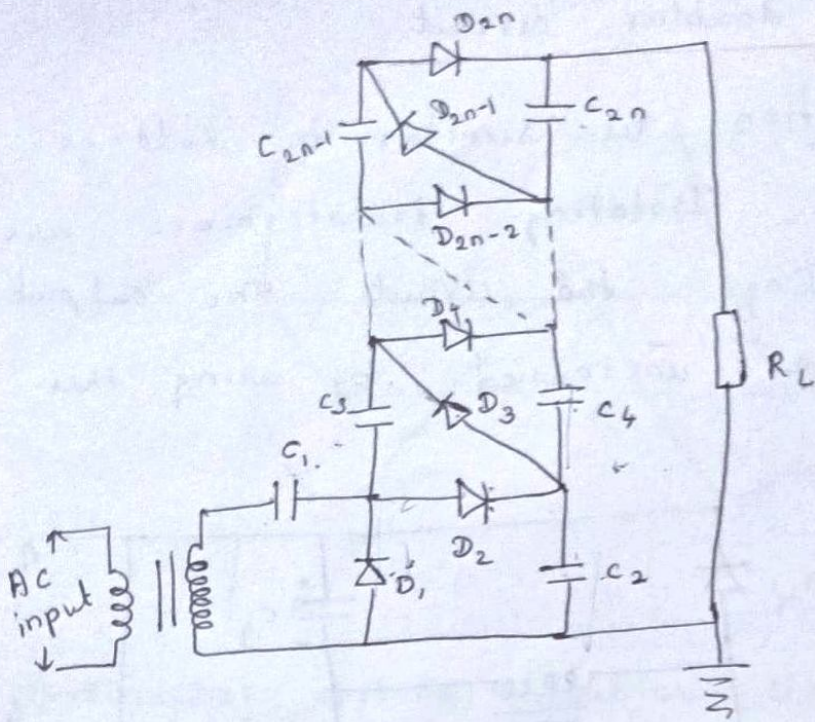 D2n
C2n-1
D2n-1
C2n
D2n-2
D4
C3
D3
C4
RL
C1
D2
D1
C2
AC
input